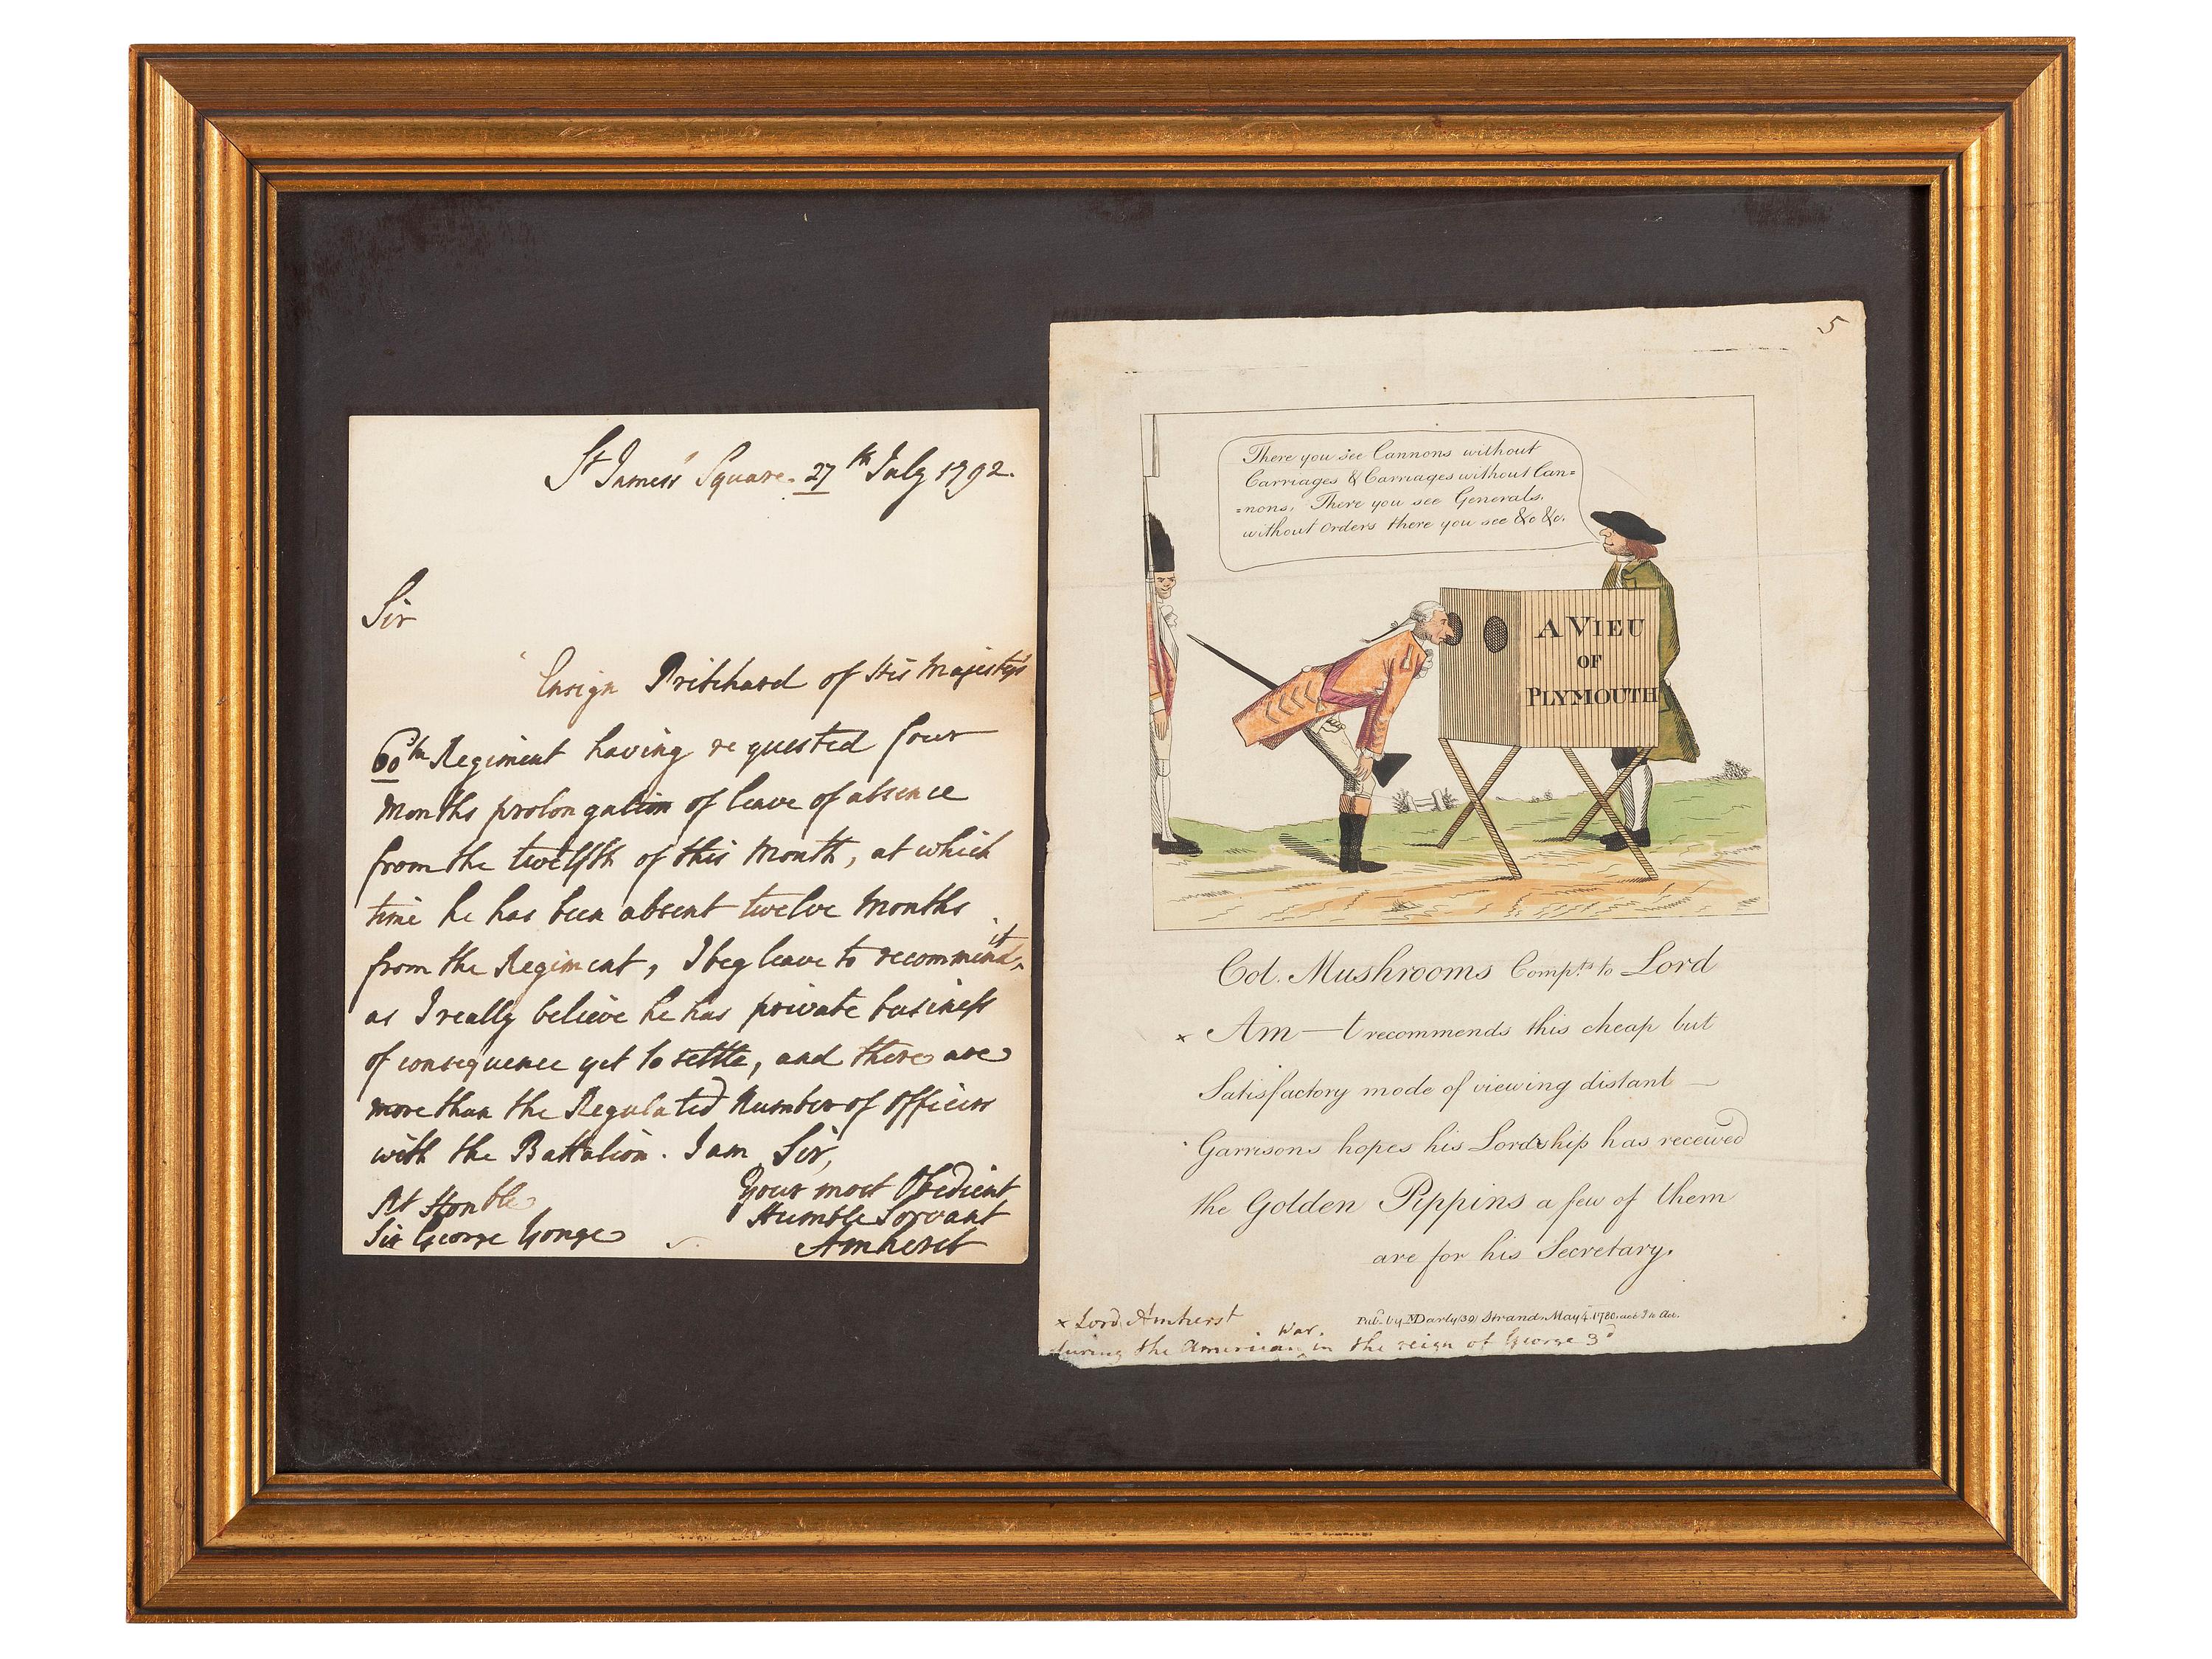 St James's Square. 27th July 1792.
Sir
Ensign Pritchard of His Majesty's
60th Regiment having requested four
months prolongation of leave of absence
from the twelfth of this Month, at which
time he has been absent twelve Months
from the Regiment, I beg leave to recommend it,
as I really believe he has private business
of consequence yet to settle, and there are
more than the Regulated Number of Officers
with the Battalion. I am Sir,
Your most Obedient
Humble Servant
Amherst
Rt Honble
Sir George Yonge
5
There you see Cannons without
Carriages & Carriages without Can=
=nons, There you see Generals,
without Orders there you see &c &c.
A VIEU
OF
PLYMOUTH
Col. Mushrooms Compts to Lord
x Am—t recommends this cheap but
Satisfactory mode of viewing distant —
Garrisons hopes his Lordship has received
the Golden Pippins a few of them
are for his Secretary.
Pub. by MDarly (39) Strand May 4 1780
x Lord Amherst
during the American War. in the reign of George 3d